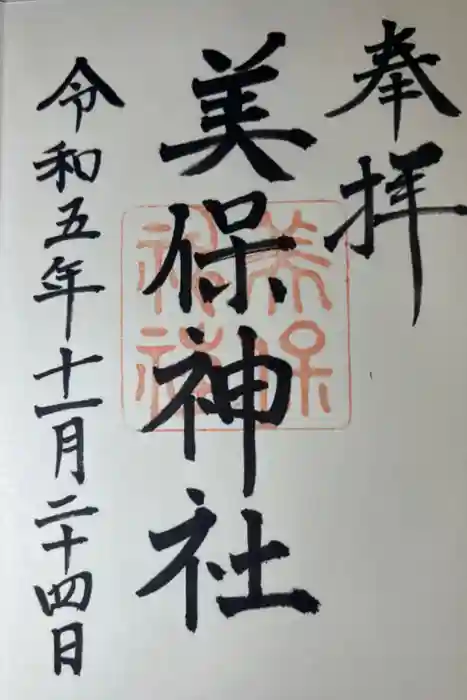 奉拝
美保神社
令和五年十一月二十四日
美保
神社